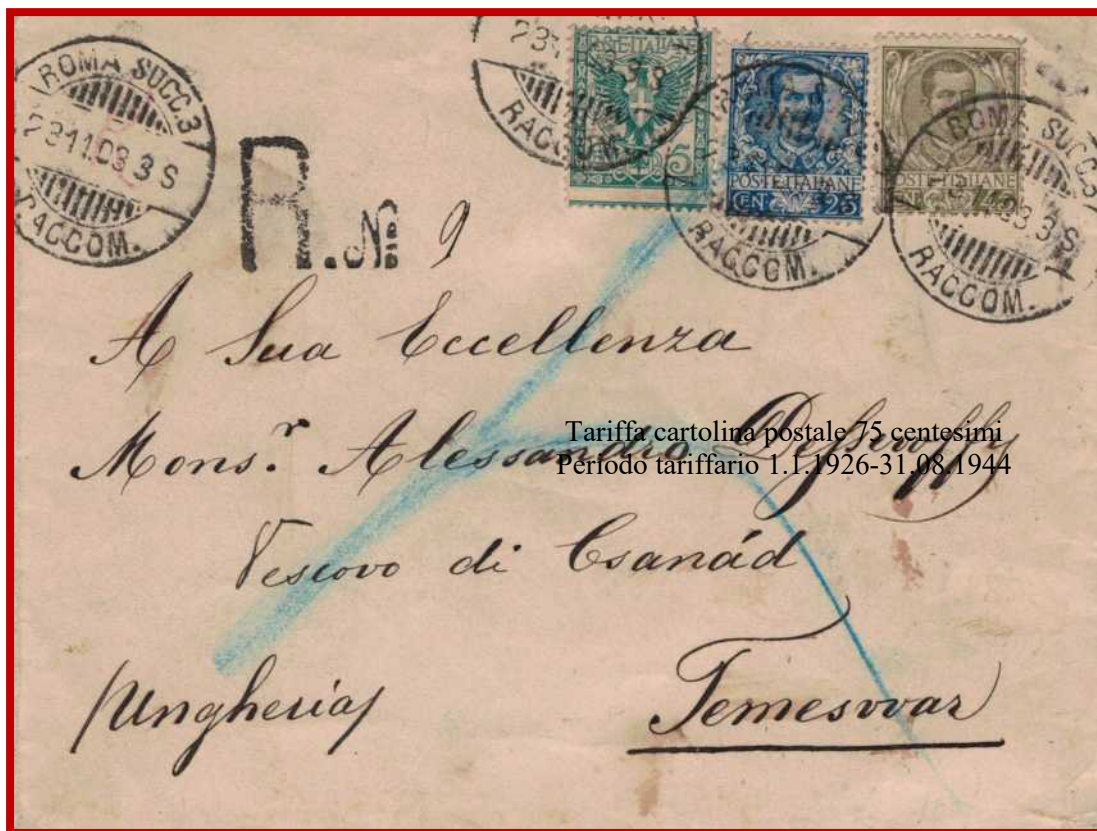 ROMA SUCC. 3
23 11.03 3 S
RACCOM.
23
3 S
RACCOM.
POSTE ITALIANE
5
POSTE ITALIANE
CEN 25
RACCOM.
POSTE ITALIANE
ROMA SUCC. 3
3 S
RACCOM.
R. No 9
A Sua Eccellenza
Mons.r Alessandro
Tariffa cartolina postale 75 centesimi
Periodo tariffario 1.1.1926-31.08.1944
Vescovo di Csanád
(Ungheria) Temesvvar